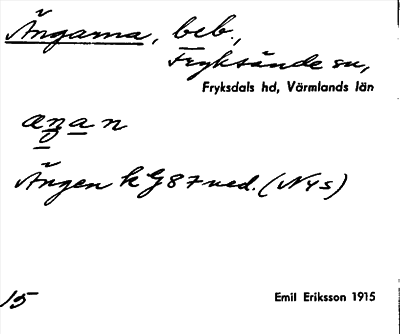 Ängarna, beb.,
Fryksände sn,
Fryksdals hd, Värmlands län
Ängen k G 87 ned. (NYS)
15
Emil Eriksson 1915